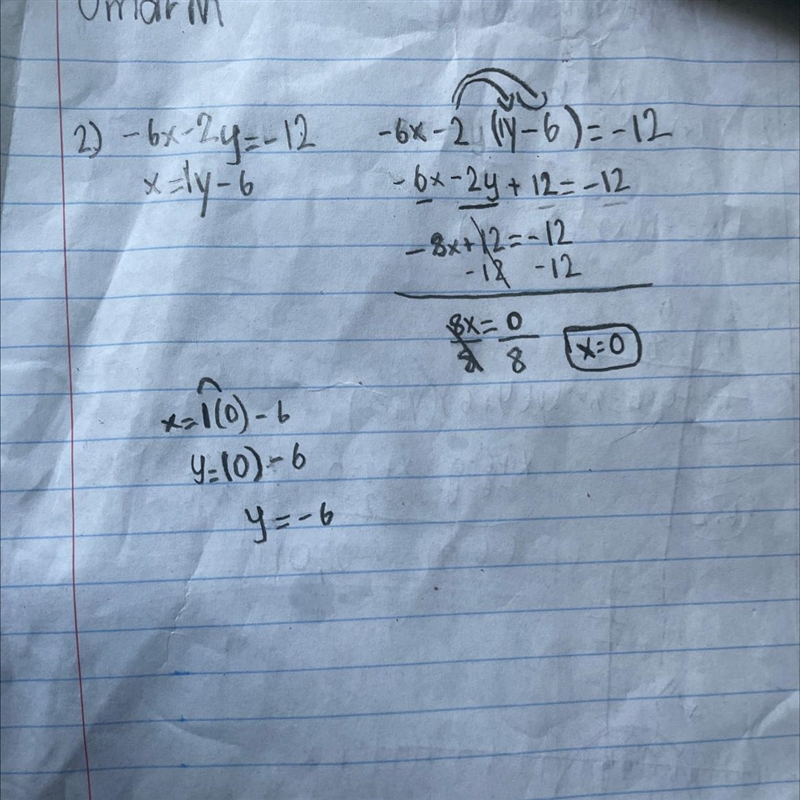 Umar M
2) -6x-2y=-12
x=1y-6
-6x-2 (1y-6)=-12
-6x-2y+12=-12
-8x+12=-12
-12 -12
8x=0
8 8
x=0
x=1(0)-6
y=(0)-6
y=-6